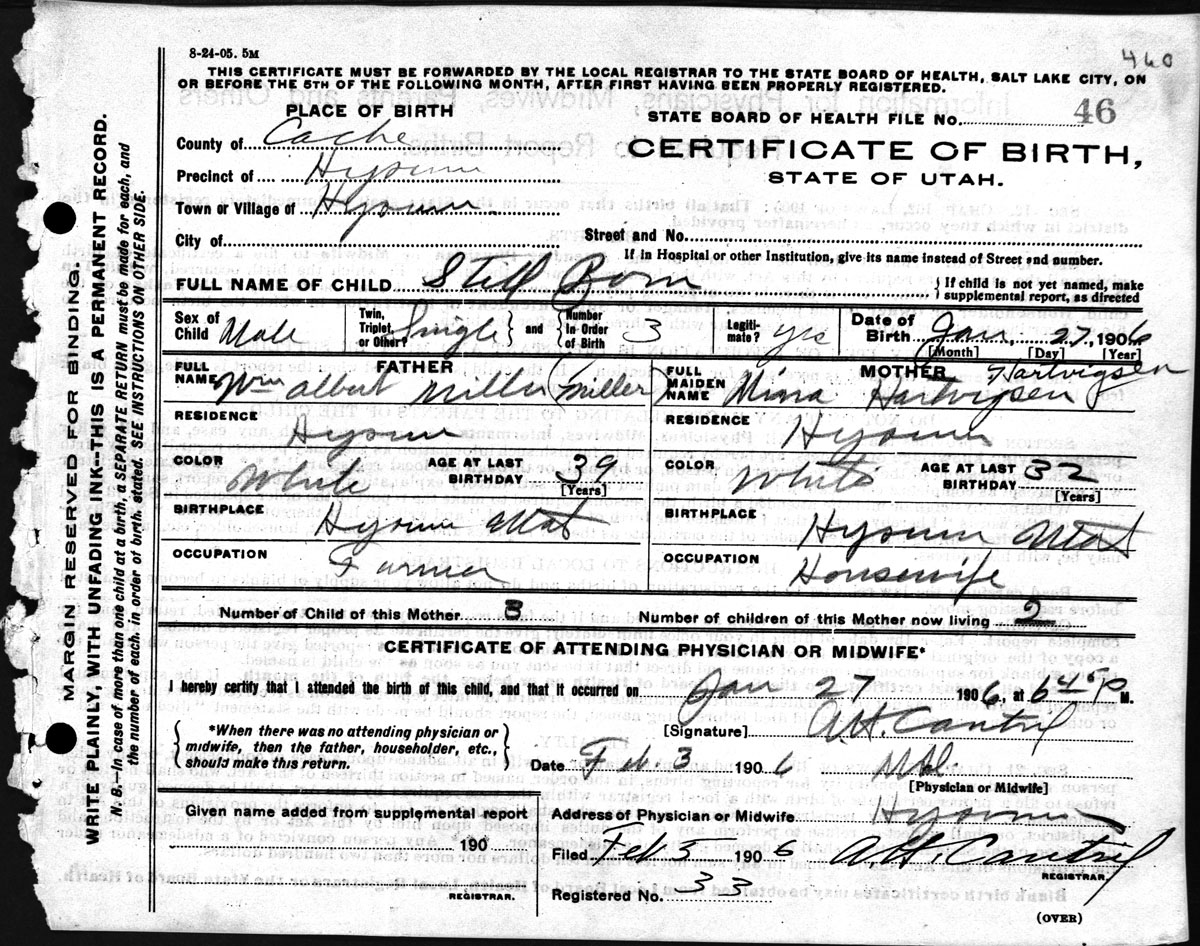 8-24-05. 5M
460
THIS CERTIFICATE MUST BE FORWARDED BY THE LOCAL REGISTRAR TO THE STATE BOARD OF HEALTH, SALT LAKE CITY, ON
OR BEFORE THE 5TH OF THE FOLLOWING MONTH, AFTER FIRST HAVING BEEN PROPERLY REGISTERED.
PLACE OF BIRTH
STATE BOARD OF HEALTH FILE No. 46
County of Cache
CERTIFICATE OF BIRTH,
Precinct of Hyrum
STATE OF UTAH.
Town or Village of Hyrum
City of
Street and No.
If in Hospital or other Institution, give its name instead of Street and number.
FULL NAME OF CHILD Still Born
{ If child is not yet named, make
supplemental report, as directed
Sex of Child Male
Twin, Triplet, or Other? Single } and { Number In Order of Birth 3
Legiti-mate? yes
Date of Birth Jan, 27, 1906
[Month] [Day] [Year]
FATHER
FULL NAME Wm Albert Miller (Miller)
MOTHER Hartvigsen
FULL MAIDEN NAME Mina Hartvigsen
RESIDENCE Hyrum
RESIDENCE Hyrum
COLOR White
AGE AT LAST BIRTHDAY 39
[Years]
COLOR White
AGE AT LAST BIRTHDAY 32
[Years]
BIRTHPLACE Hyrum Utah
BIRTHPLACE Hyrum Utah
OCCUPATION Farmer
OCCUPATION Housewife
Number of Child of this Mother 3
Number of children of this Mother now living 2
CERTIFICATE OF ATTENDING PHYSICIAN OR MIDWIFE*
I hereby certify that I attended the birth of this child, and that it occurred on Jan 27 1906, at 6 45 P M.
{ *When there was no attending physician or
midwife, then the father, householder, etc.,
should make this return. }
[Signature] A.H. Cantril
Date Feb. 3 1906
M.D.
[Physician or Midwife]
Given name added from supplemental report
190
REGISTRAR.
Address of Physician or Midwife Hyrum
Filed Feb 3 1906 A. H. Cantril
REGISTRAR.
Registered No. 33
(OVER)
MARGIN RESERVED FOR BINDING.
WRITE PLAINLY, WITH UNFADING INK--THIS IS A PERMANENT RECORD.
N. B.--In case of more than one child at a birth, a SEPARATE RETURN must be made for each, and
the number of each, in order of birth, stated. SEE INSTRUCTIONS ON OTHER SIDE.